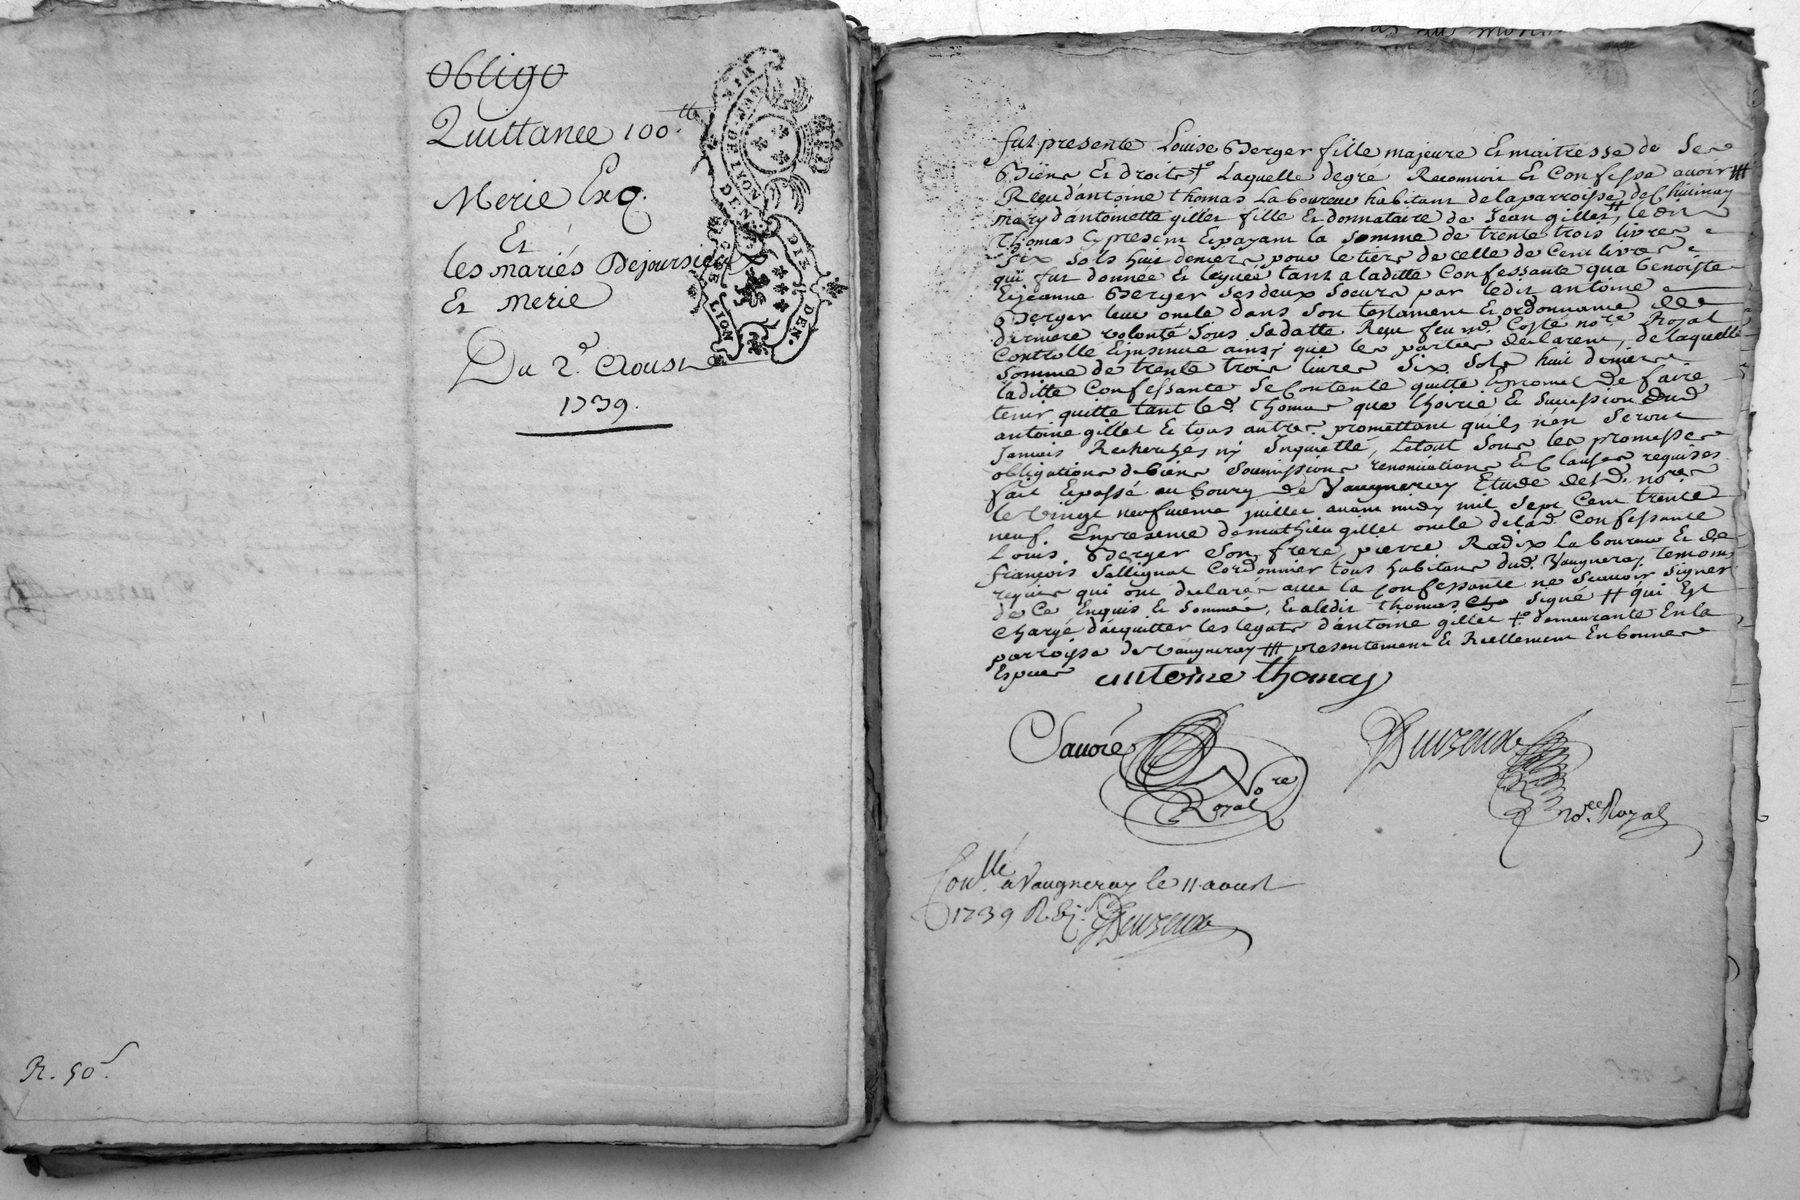 Obligo
Quittance 100.lt
Merie Exq.
Et
les mariés Dejoursieux
Et Merie
Du 2.e Aoust
1739.
R. 50.s
GEN. DE LYON
DIX DEN.
fut presente Louise Berger fille majeure Et maitresse de Ses
Biens Et droits ‡ Laquelle degré Reconnoit Et Confesse avoir ###
Reçu d'antoine thomas Laboureur habitant de la parroisse de Chivinay
mary d'antoinette gillet fille Et donnataire de Jean gillet, ## ledit
Thomas Cy present Et payant la Somme de trente trois livres
Six Sols huit deniers pour le tiers de celle de Cent livres
qui fut donnée Et leguée tant a laditte Confessante qua benoiste
Et jeanne Berger Ses deux Soeurs par ledit antoine
Berger leur oncle dans Son testament Et ordonnance de
derniere volonté Sous Sa datte Reçu feu me. Coste nore. Royal
Controllé Et insinué ainsy que les parties declarent, de laquelle
Somme de trente trois livres Six Sols huit deniers
laditte Confessante Se Contente quitte Et promet de faire
tenir quitte tant led. thomas que l'hoirie Et Succession dud
antoine gillet Et tous autres promettant quils n'en Seront
Jamais Recherchés ny Inquietté, Letout Sous les promesses
obligations de biens Soumissions renonciations Et Clauses requises
fait Et passé au bourg de Vaugneray Etude desd. nores
le vingt neufvieme juillet avant midy mil Sept Cent trente
neuf. En presence de mathieu gillet oncle de lad. Confessante
Louis Berger Son frere, pierre Radix Laboureur Et de
françois Sallignat Cordonnier tous habitans dud. Vaugneray temoins
requis qui ont declarés avec la Confessante ne Scavoir Signer
de Ce Enquis Et Sommés, Et a ledit thomas Signé ## qui Est
Chargé d'acquitter les legats d'antoine gillet ‡ demeurante En la
parroisse de Vaugneray ### presentement Et Reellement En bonnes
Especes antoine thomas
Savoré Nore Royal
Duvreux
no.re Royal
Con.llé a Vaugneray le 11 aoust
1739 R. Duvreux